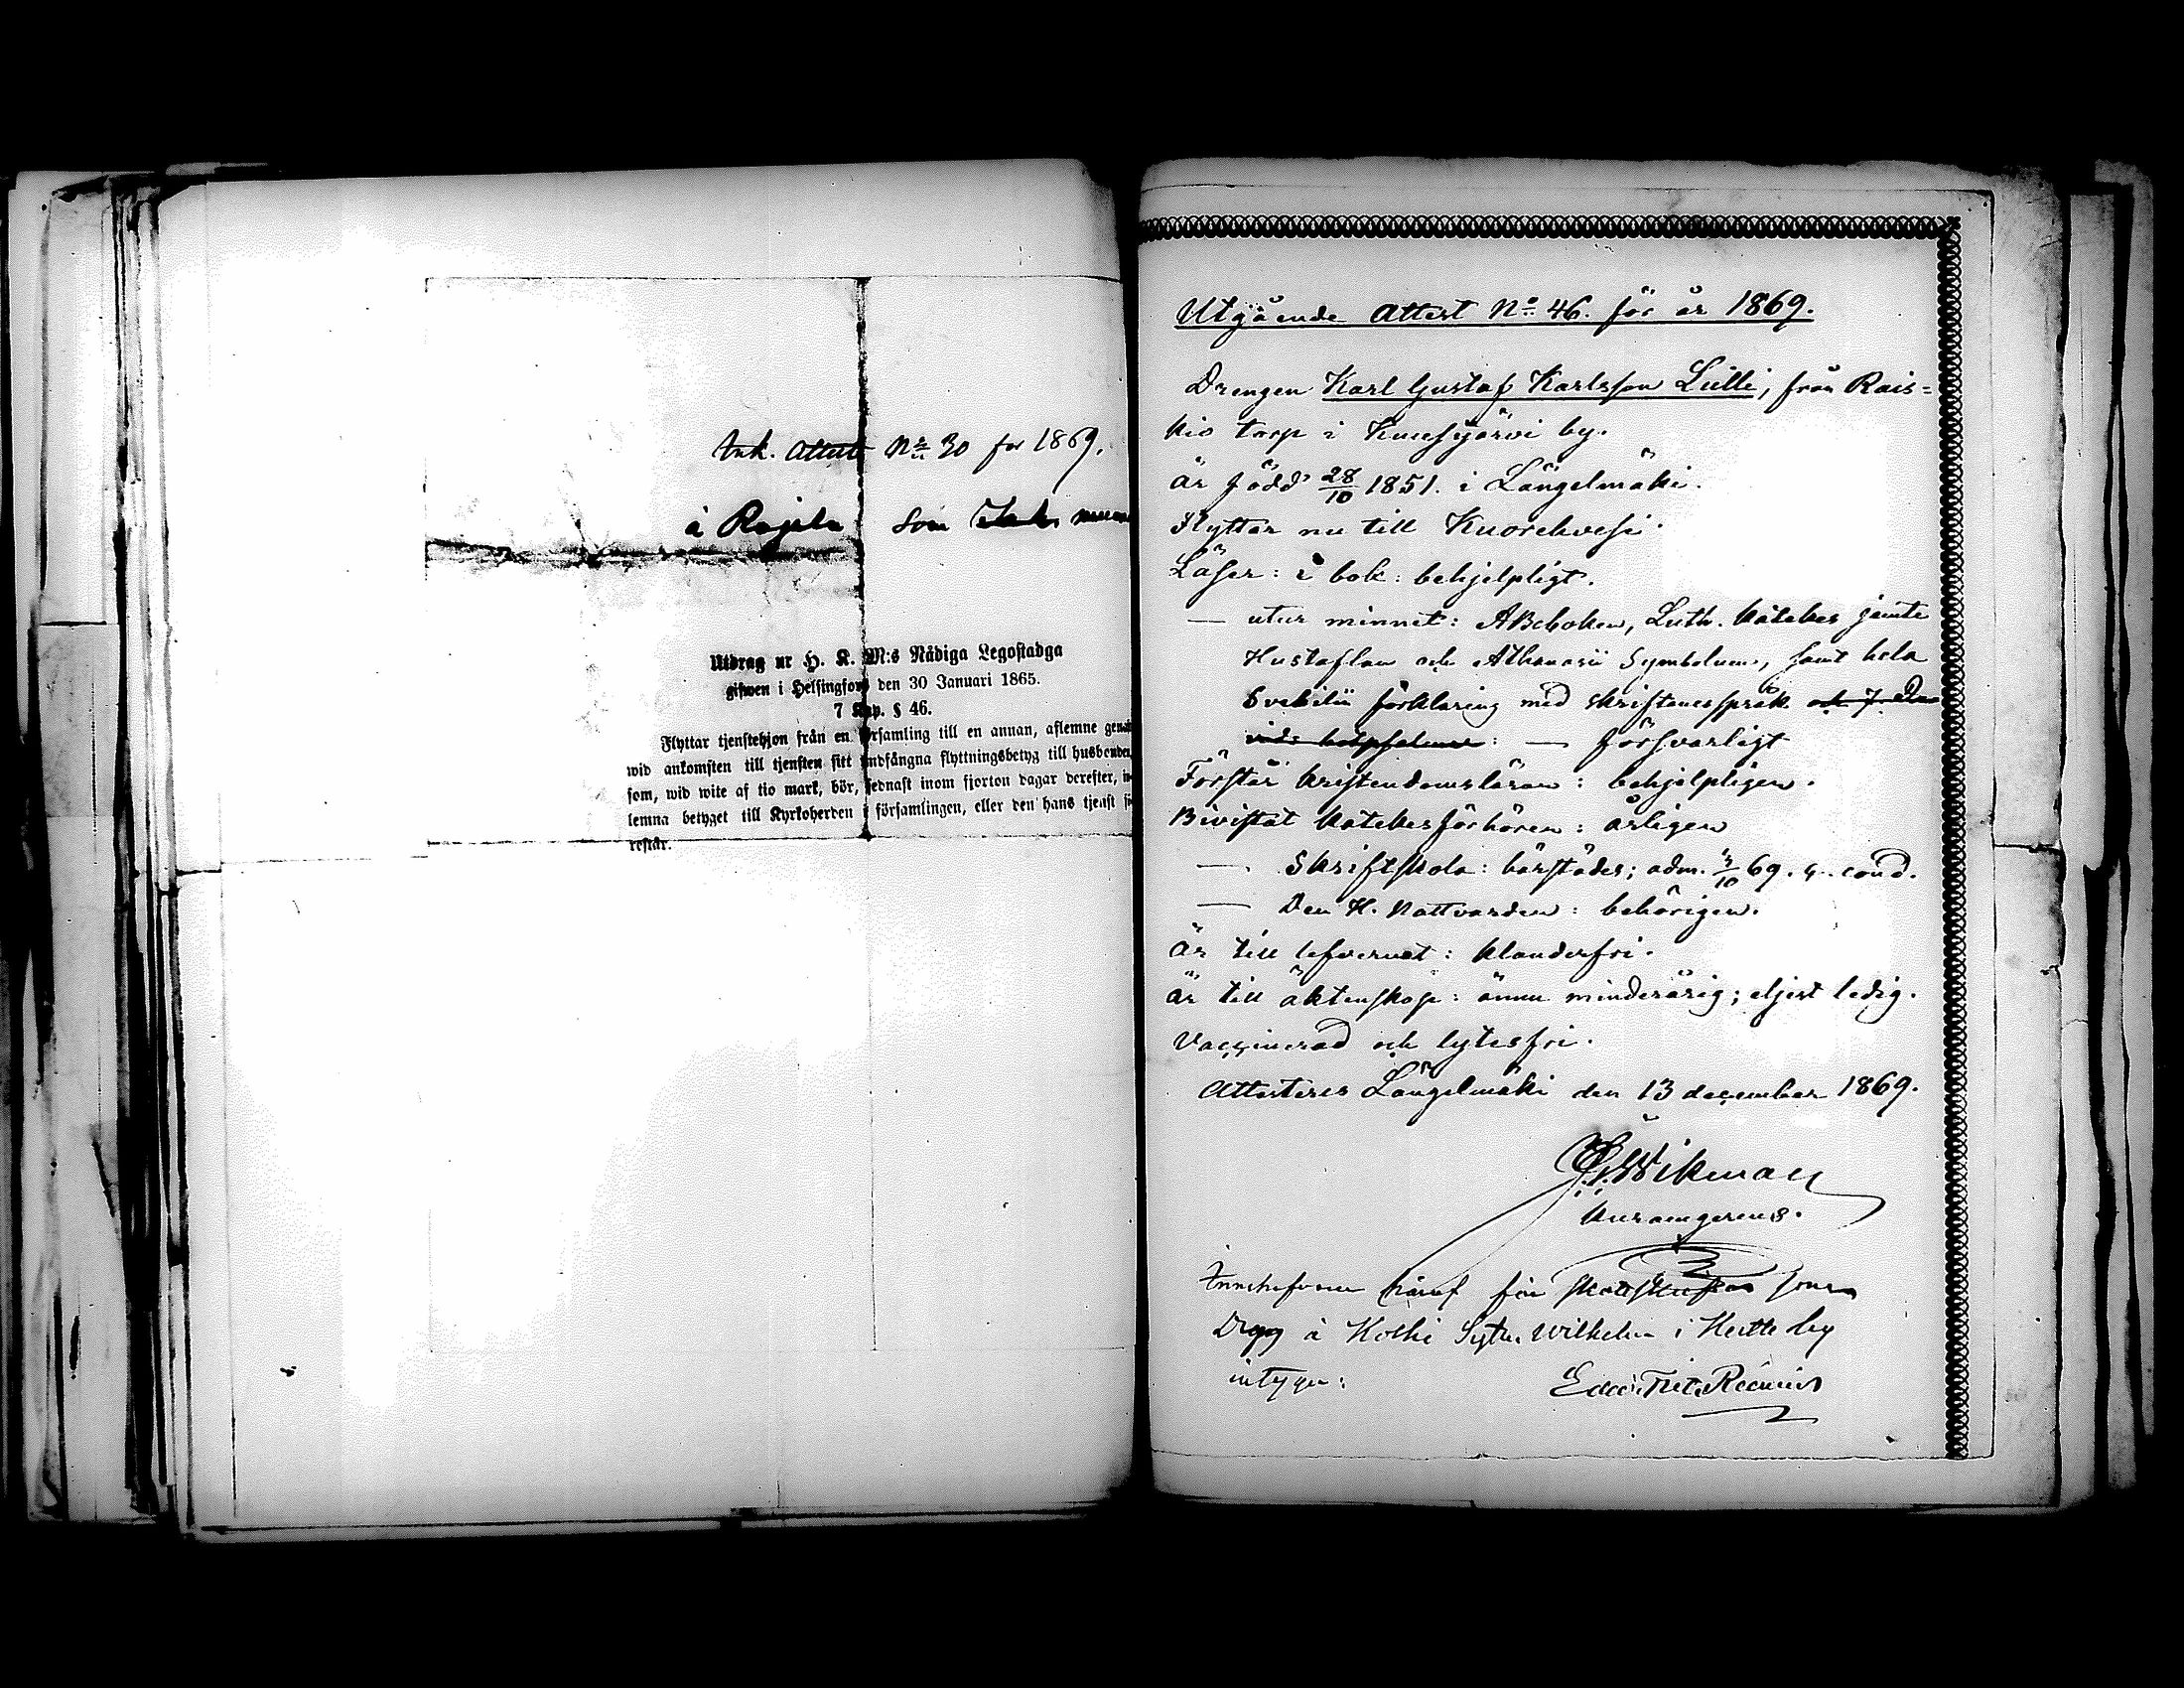 Ank. Attest No 30 for 1869.
å Rajala som
Utdrag ur H. K. M:s Nådiga Legostadga
gifwen i Helsingfors den 30 Januari 1865.
7 Kap. § 46.
Flyttar tjenstehjon från en församling till en annan, aflemne genast
wid ankomsten till tjensten sitt undfångna flyttningsbetyg till husbonden,
som, wid wite af tio mark, bör, sednast inom fjorton dagar derefter, in-
lemna betyget till Kyrkoherden i församlingen, eller den hans tjenst
restår.
Utgående Attest No 46. för år 1869.
Drengen Karl Gustaf Karlsson Lulli, från Rais=
kio torp i Kuusjärvi by.
är född 28/10 1851. i Längelmäki.
Flyttar nu till Kuorehvesi.
Läser: i bok: behjelpligt.
— utur minnet: ABcboken, Luth. katekes jemte
Hustaflan och Athanasii Symbolum, samt hela
Svebilii förklaring med skriftenes språk och 7. Da
vids botpsalmer: — försvarligt
Förstår kristendomsläran: behjelpligen.
Bivistat katekesförhören: årligen
— Skriftskola: härstädes; adm. /10 69. c. cond.
— Den H. Nattvarden: behörigen.
Är till lefvernet: klanderfri.
Är till äktenskap: ännu minderårig; eljest ledig.
Vaccinerad och lytesfri.
Attesteras Längelmäki den 13 december 1869.
Wikman
Innehafvaren häraf för som
Dreng å Koski Wilhelm i by
intygar: